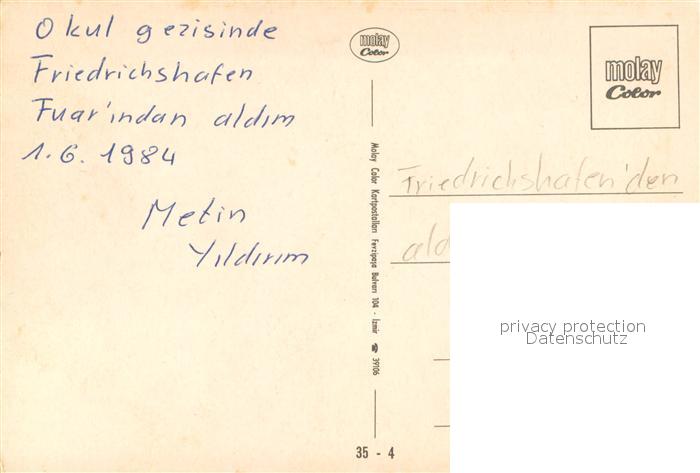 Okul gezisinde
Friedrichshafen
Fuar'ından aldım
1.6.1984
Metin
Yıldırım
molay
Color
Molay Color Kartpostalları Fevzipaşa Bulvarı 104 - İzmir ☎ 39106
35 - 4
molay
Color
Friedrichshafen'den
privacy protection
Datenschutz